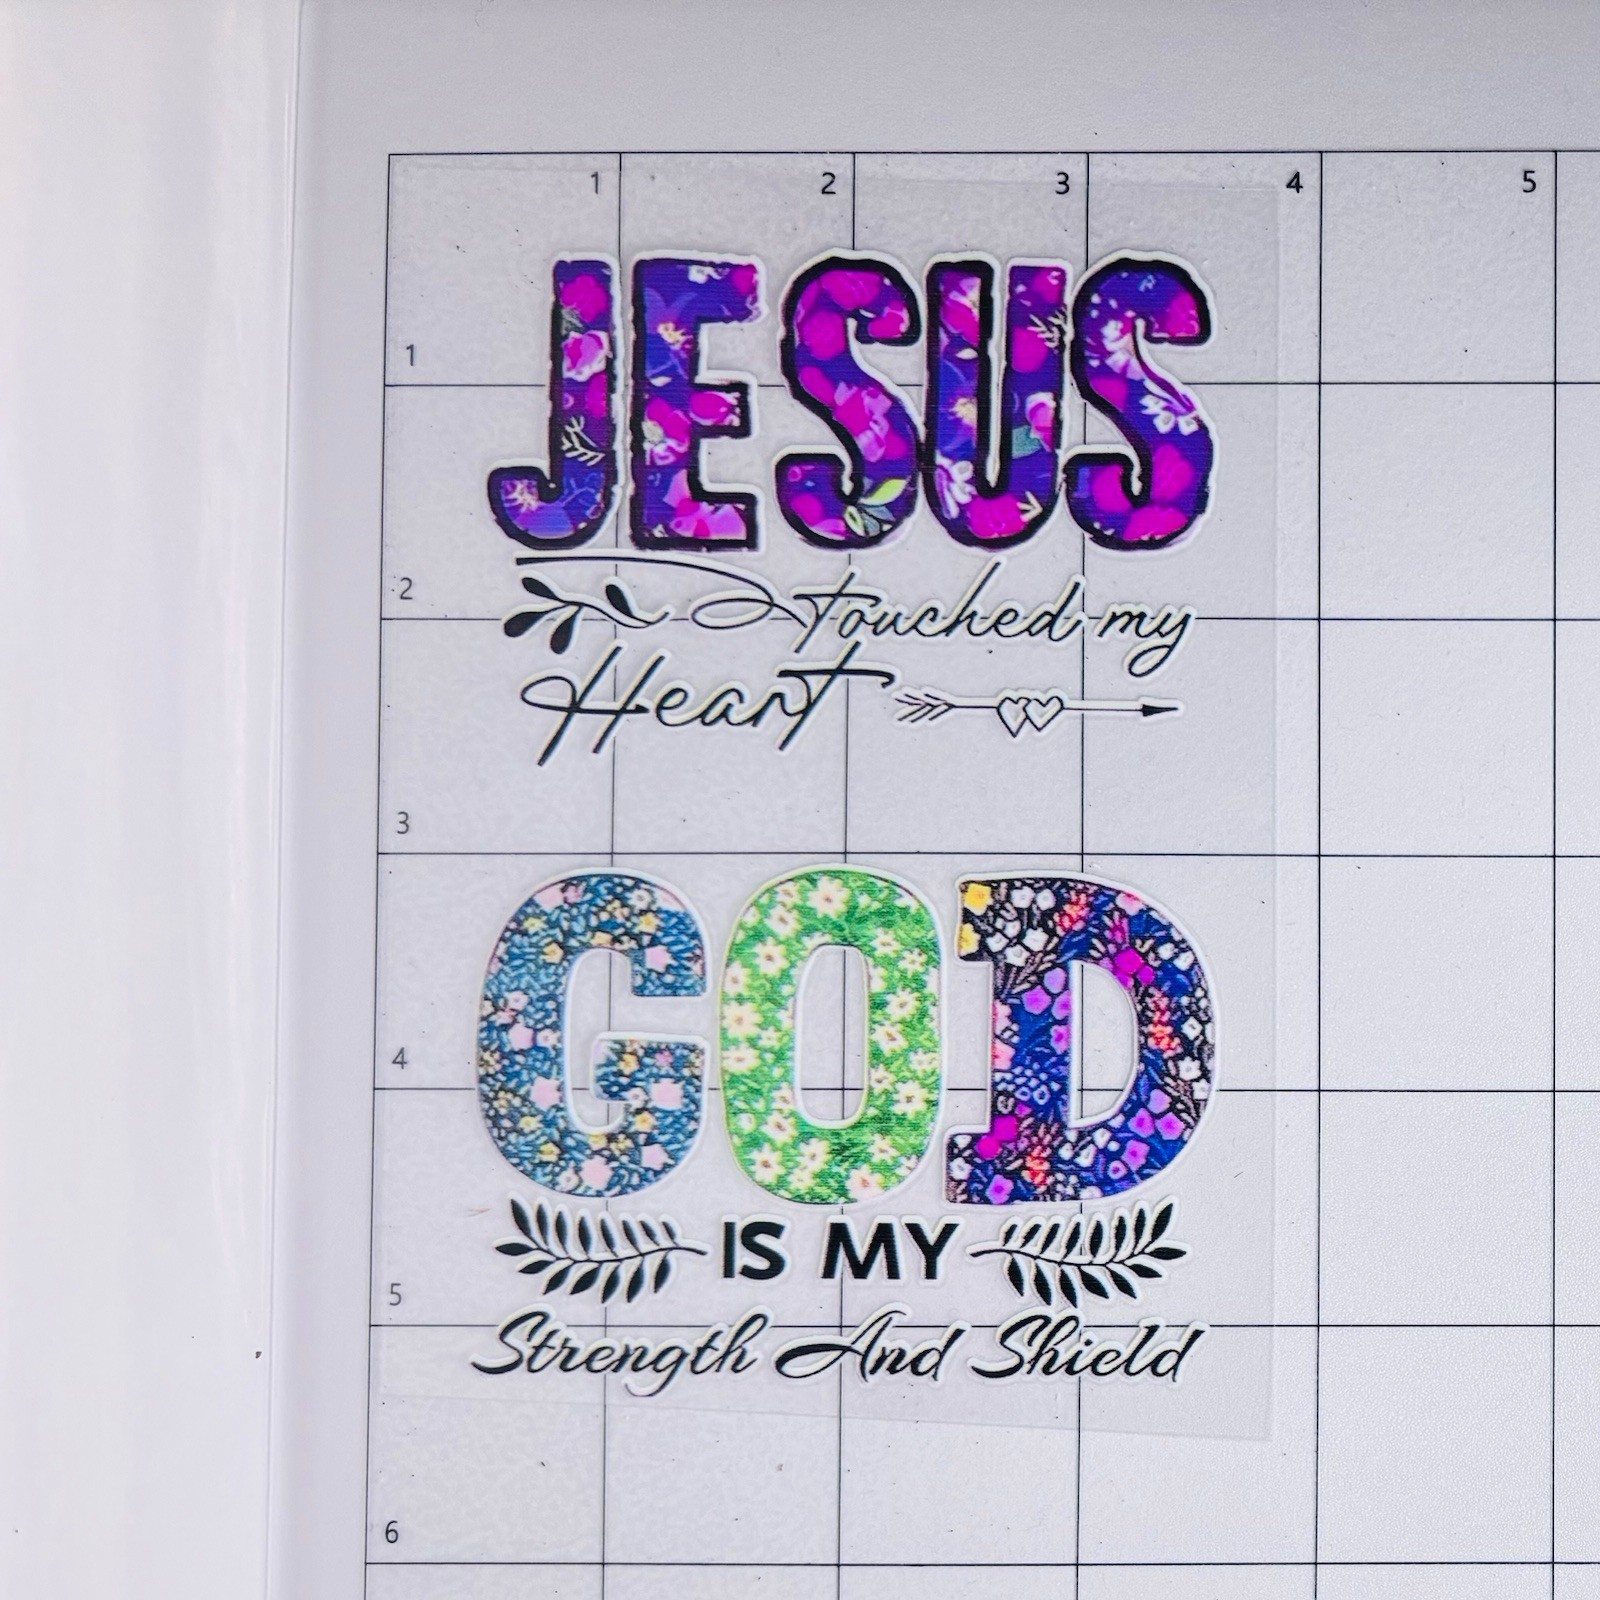 1 2 3 4 5
JESUS
1
2
touched my
Heart
3
GOD
4
IS MY
5
Strength And Shield
6